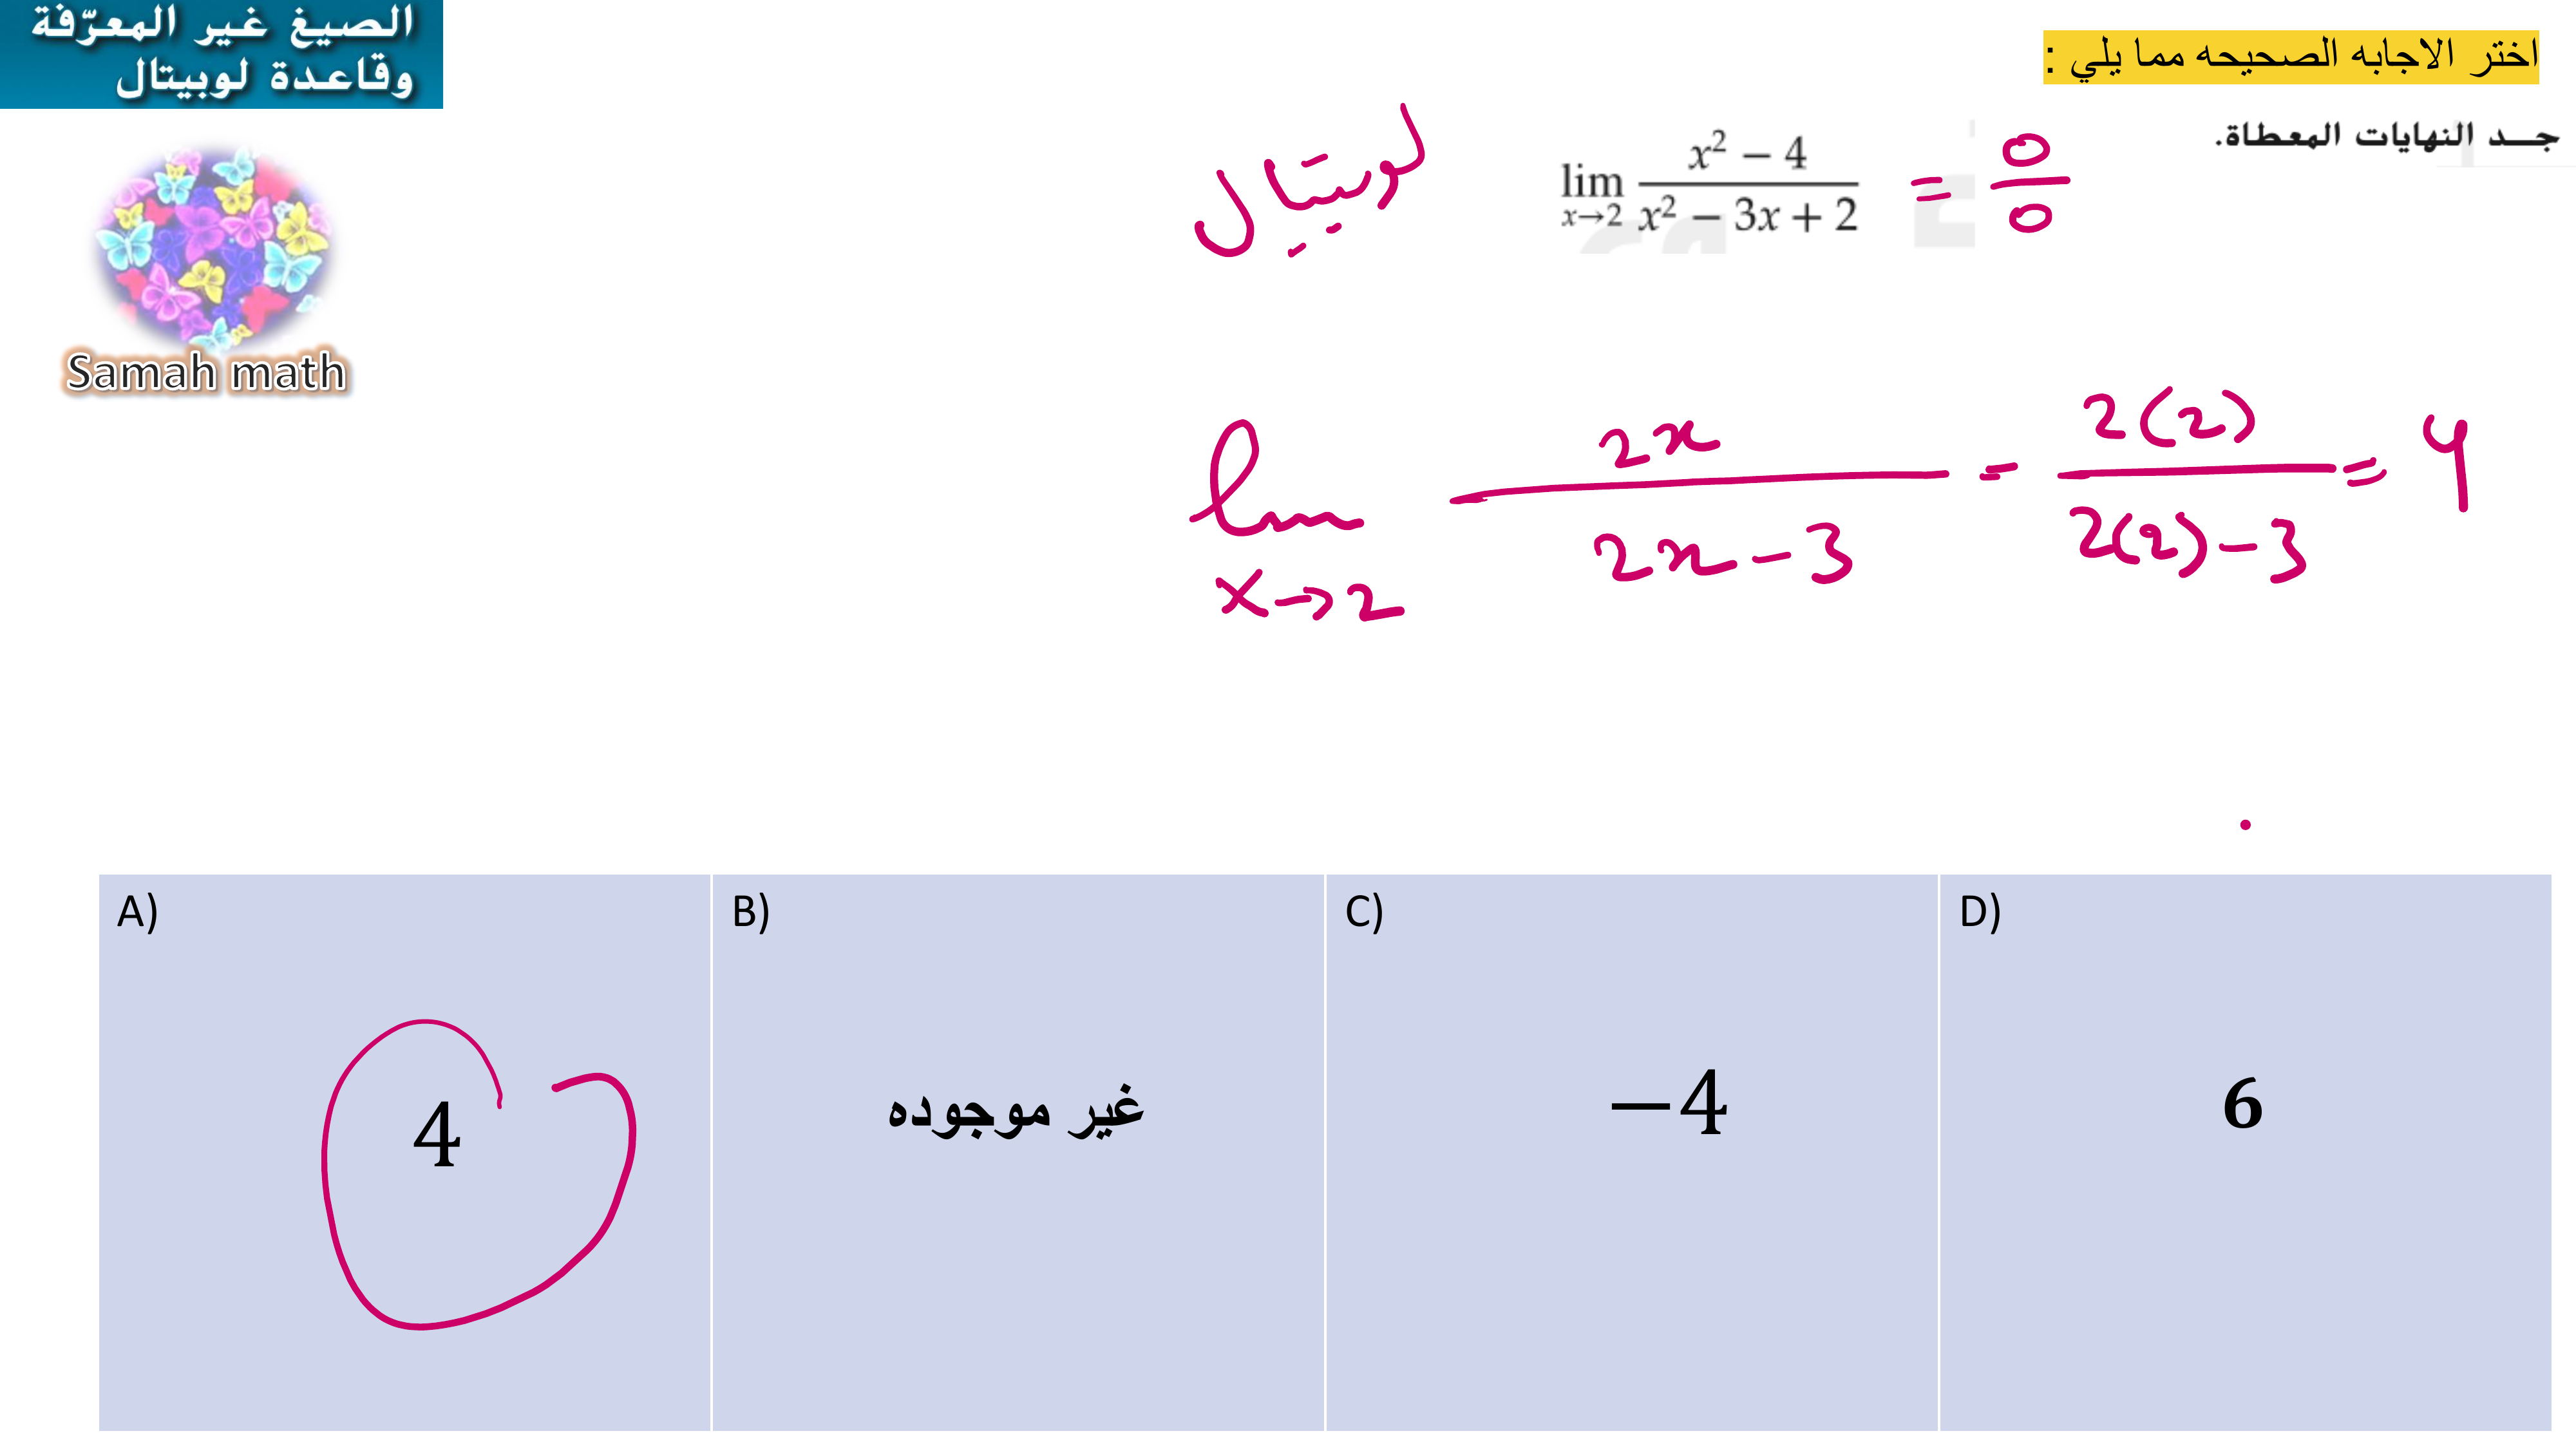 الصيغ غير المعرّفة
وقاعدة لوبيتال
Samah math
اختر الاجابه الصحيحه مما يلي :
جد النهايات المعطاة.
لوبيتال lim x→2 (x² − 4)/(x² − 3x + 2) = 0/0
lim x→2 2x/(2x − 3) = 2(2)/(2(2) − 3) = 4
A) 4
B) غير موجوده
C) −4
D) 6